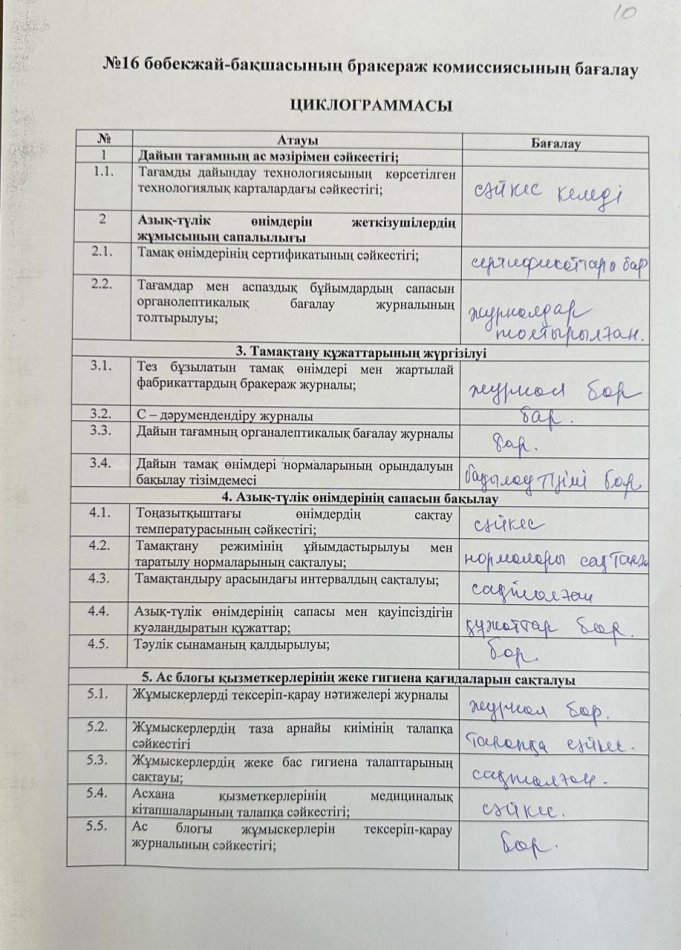 10
№16 бөбекжай-бақшасының бракераж комиссиясының бағалау
ЦИКЛОГРАММАСЫ
№ Атауы Бағалау
1 Дайын тағамның ас мәзірімен сәйкестігі;
1.1. Тағамды дайындау технологиясының көрсетілген
технологиялық карталардағы сәйкестігі;
сәйкес келеді
2 Азық-түлік өнімдерін жеткізушілердің
жұмысының сапалылығы
2.1. Тамақ өнімдерінің сертификатының сәйкестігі;
сертификаттары бар
2.2. Тағамдар мен аспаздық бұйымдардың сапасын
органолептикалық бағалау журналының
толтырылуы;
журналдар
толтырылған.
3. Тамақтану құжаттарының жүргізілуі
3.1. Тез бұзылатын тамақ өнімдері мен жартылай
фабрикаттардың бракераж журналы;
журнал бар
3.2. С – дәрумендендіру журналы бар.
3.3. Дайын тағамның органалептикалық бағалау журналы
бар.
3.4. Дайын тамақ өнімдері нормаларының орындалуын
бақылау тізімдемесі
бақылау тізімі бар
4. Азық-түлік өнімдерінің сапасын бақылау
4.1. Тоңазытқыштағы өнімдердің сақтау
температурасының сәйкестігі;
сәйкес
4.2. Тамақтану режимінің ұйымдастырылуы мен
таратылу нормаларының сақталуы;
нормалары
4.3. Тамақтандыру арасындағы интервалдың сақталуы;
сақталған
4.4. Азық-түлік өнімдерінің сапасы мен қауіпсіздігін
куәландыратын құжаттар;
құжаттар бар.
4.5. Тәулік сынаманың қалдырылуы;
бар.
5. Ас блогы қызметкерлерінің жеке гигиена қағидаларын сақталуы
5.1. Жұмыскерлерді тексеріп-қарау нәтижелері журналы
журнал бар.
5.2. Жұмыскерлердің таза арнайы киімінің талапқа
сәйкестігі
талапқа сәйкес.
5.3. Жұмыскерлердің жеке бас гигиена талаптарының
сақтауы;
сақталған.
5.4. Асхана қызметкерлерінің медициналық
кітапшаларының талапқа сәйкестігі;
сәйкес.
5.5. Ас блогы жұмыскерлерін тексеріп-қарау
журналының сәйкестігі;
бар.